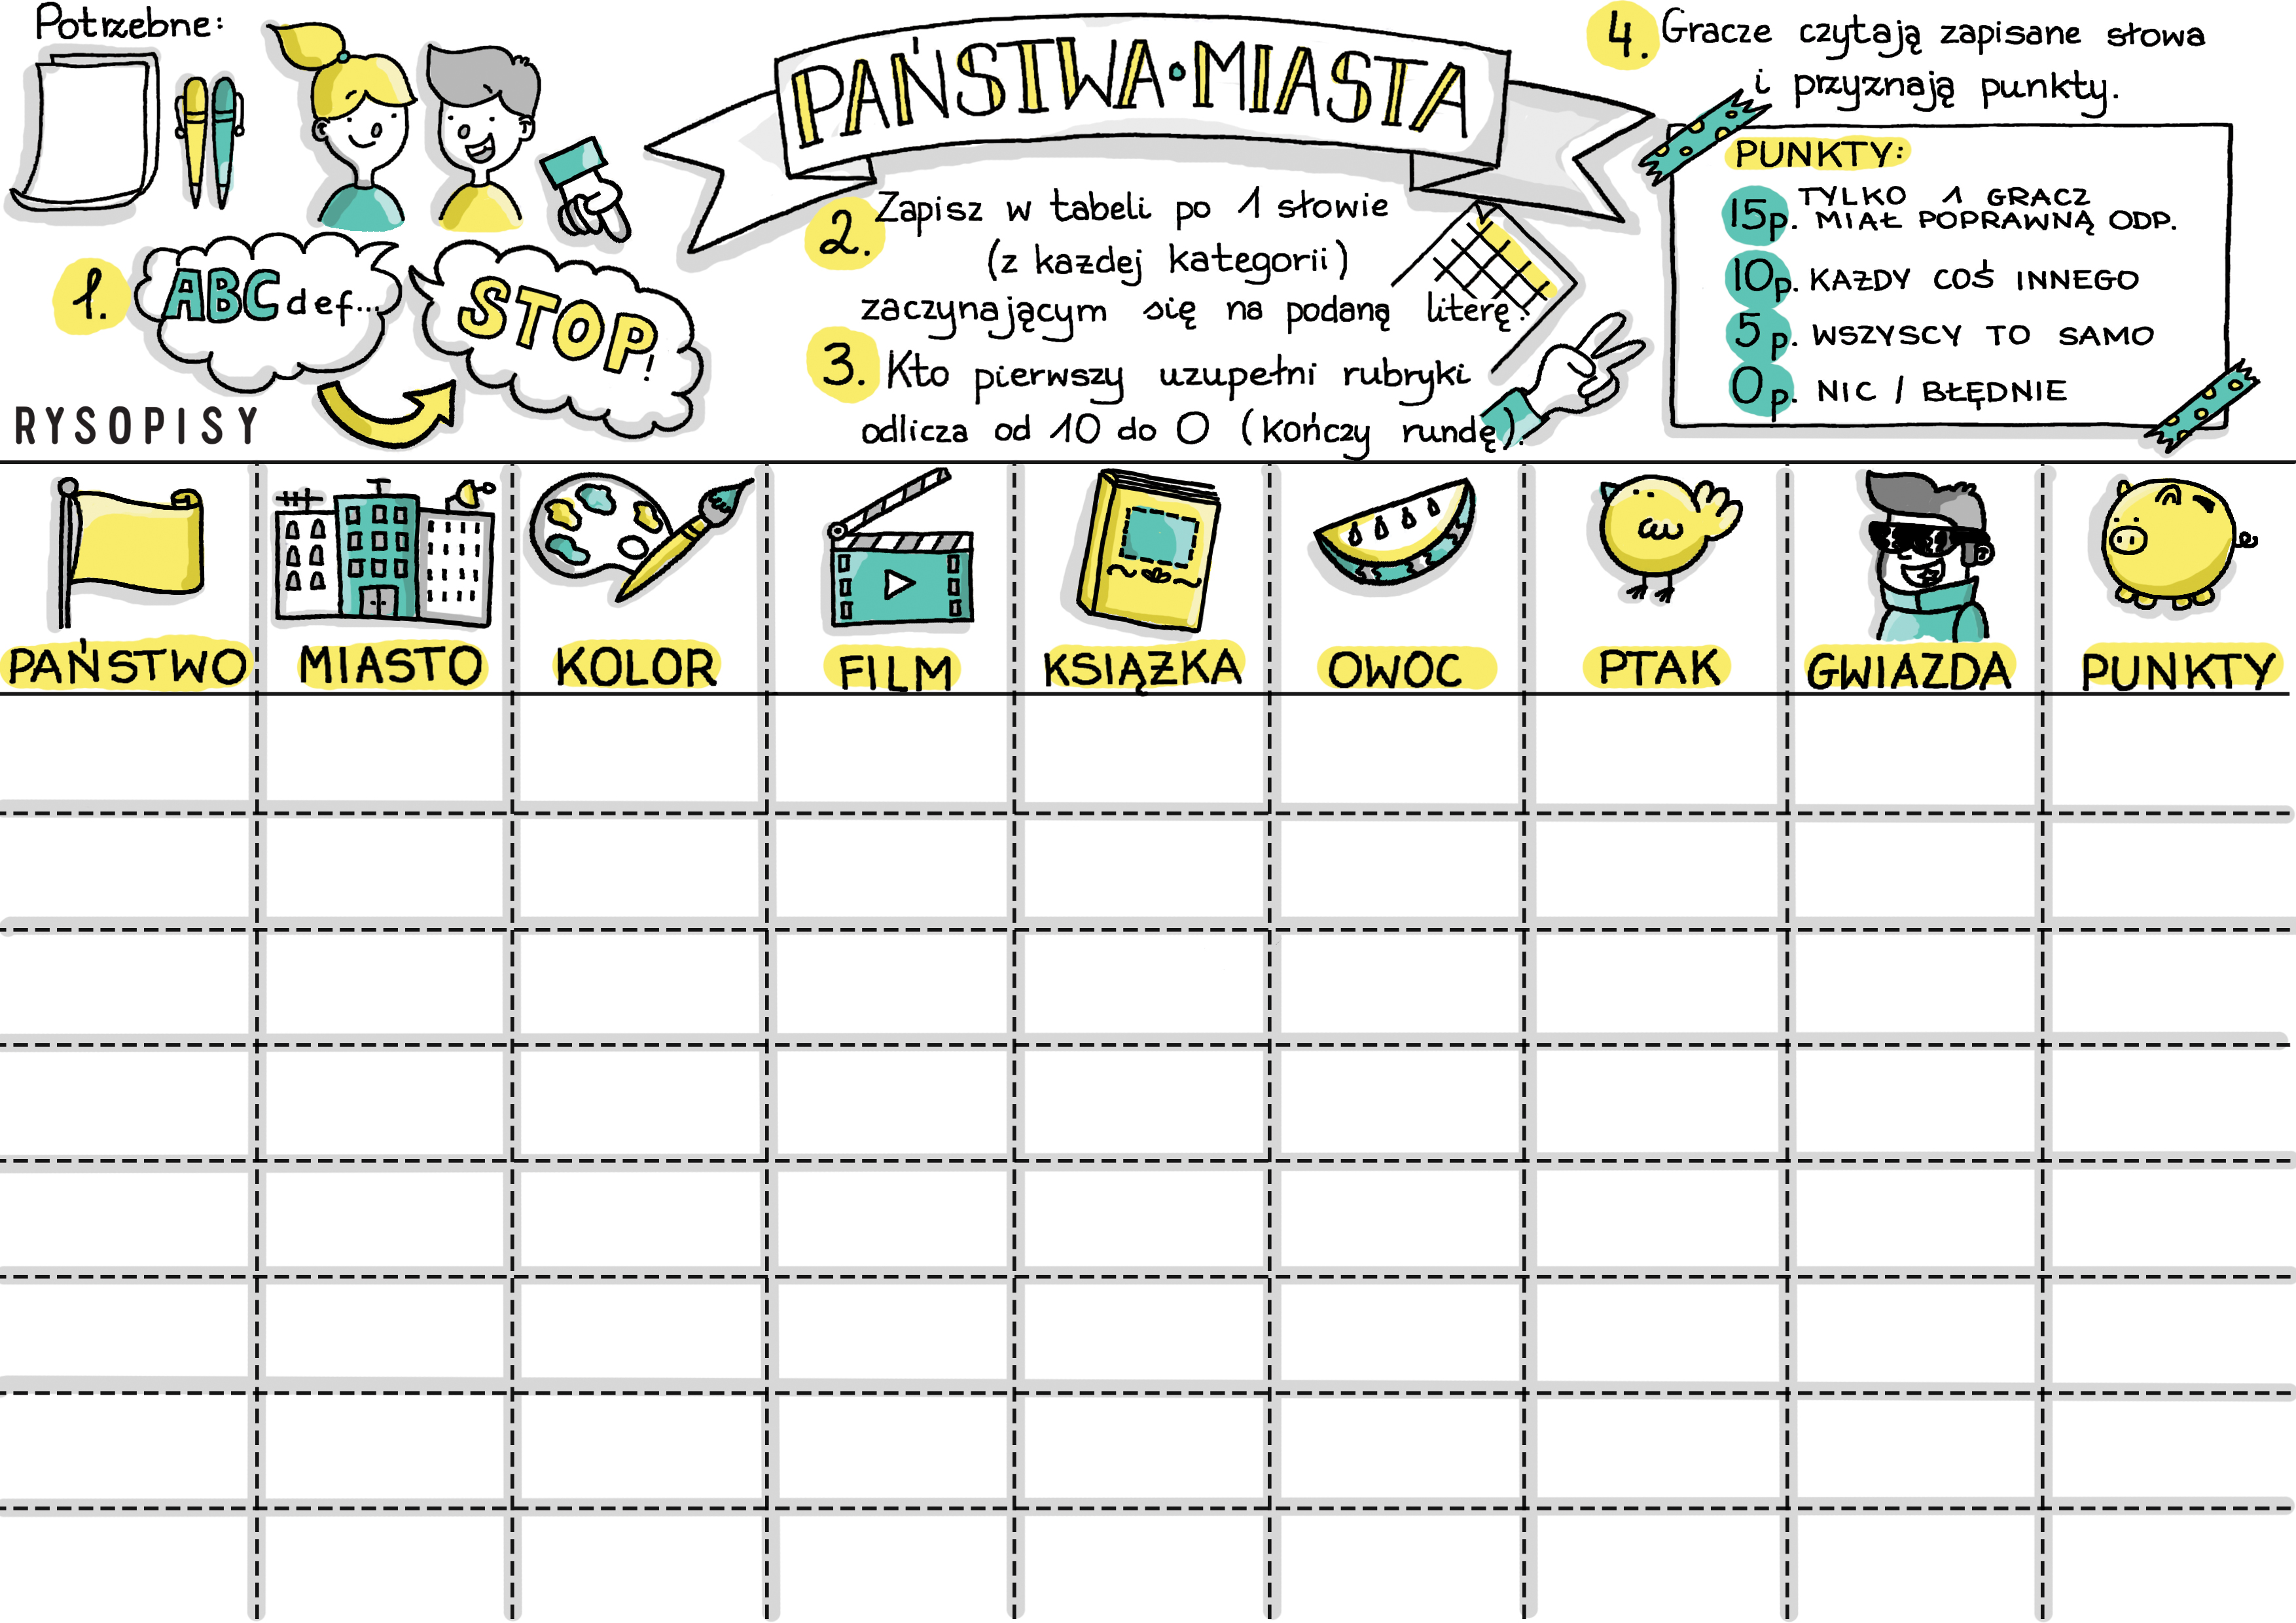 Potrzebne:
1. ABC def...
STOP!
RYSOPISY
PAŃSTWA•MIASTA
2. Zapisz w tabeli po 1 słowie
(z każdej kategorii)
zaczynającym się na podaną literę.
3. Kto pierwszy uzupełni rubryki
odlicza od 10 do 0 (kończy rundę).
4. Gracze czytają zapisane słowa
i przyznają punkty.
PUNKTY:
15p. TYLKO 1 GRACZ
MIAŁ POPRAWNĄ ODP.
10p. KAŻDY COŚ INNEGO
5p. WSZYSCY TO SAMO
0p. NIC / BŁĘDNIE
PAŃSTWO MIASTO KOLOR FILM KSIĄŻKA OWOC PTAK GWIAZDA PUNKTY